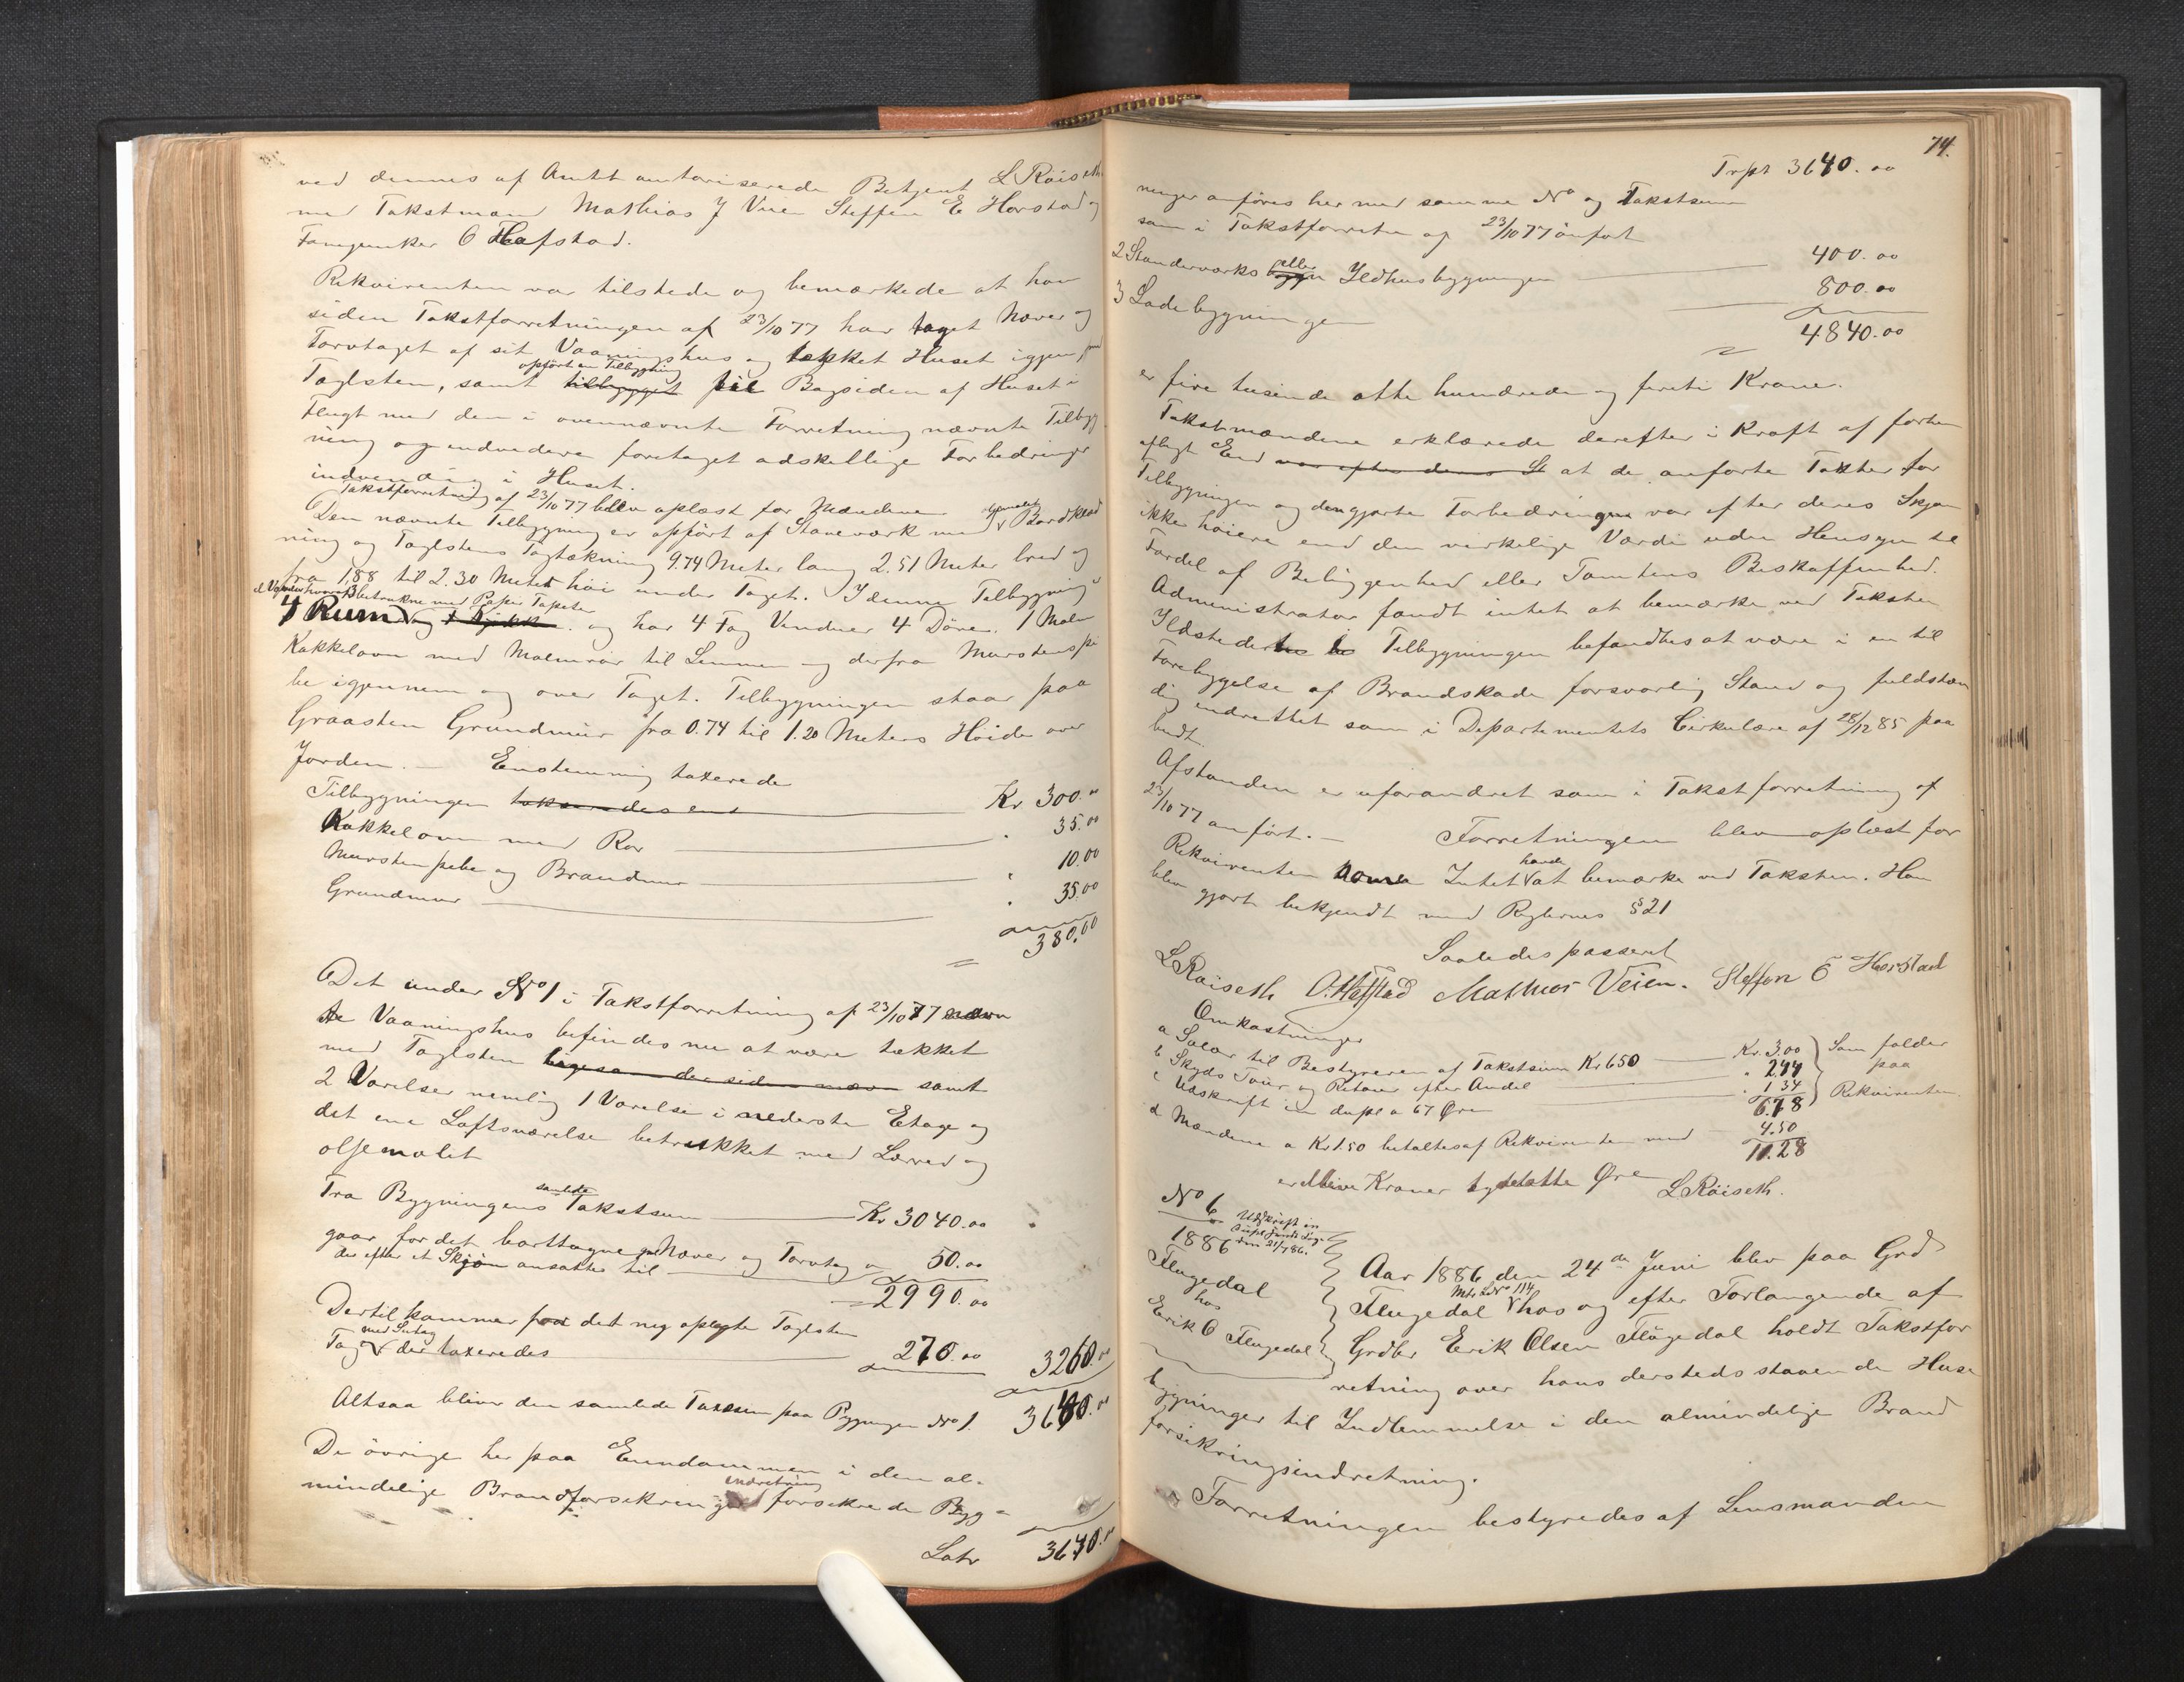 ved dennes af Amtet autoriserede Betjent L Röiseth
med Takstmænd Mathias J Veien Steffen E Horstad og
O Hafstad.
Rekvirenten var tilstede og bemærkede at han
siden Takstforretningen af 23/10 77 har taget Næver og
Torvtaget af sit Vaaningshus og tækket Huset igjen med
opført en Tilbygning
Taglsten, samt tilbygget paa Bagsiden af Huset i
Flugt med den i ovennævnte Forretning nævnte Tilbyg
ning og endvidere foretaget adskellige Forbedringer
indvendig i Huset.
Takstforretning af 23/10 77 blev oplæst for Mændene
Den nævnte Tilbygning er opført af Staveværk med Bordklæd
ning og Taglstens Tagtækning 9.74 Meter lang 2.51 Meter bred og
fra 1.88 til 2.30 Meter höi under Taget. I denne Tilbygning
hvoraf 3 betrukne med Papir Tapeter
4 Rum og har 4 Fag Vinduer 4 Döre. 1 Malm
Kakkelovn med Malmrör til Lemmen og derfra Murstenspi
be igjennem og over Taget. Tilbygningen staar paa
Graasten Grundmur fra 0.74 til 1.20 Meters Höide over
Jorden. — Enstemmig taxerede
Tilbygningen taxeredes ens Kr 300.00
Kakkelovn med Rör " 35.00
Murstenpibe og Brandmur " 10.00
Grundmur " 35.00
380.00
Det under No 1 i Takstforretning af 23/10 77 nævn
te Vaaningshus befindes nu at være tækket
med Taglsten samt
2 Værelser nemlig 1 Værelse i nederste Etage og
det ene Loftsværelse betrukket med Lærred og
oljemalet
samlede
Fra Bygningens Takstsum Kr 3040.00
gaar for det borttagne Næver og Torvtag
der efter et Skjön ansattes til 50.00
2990.00
Dertil kommer for det ny oplagte Taglsten
med Sutag
Tag der taxeredes 270.00 3260.00
Altsaa bliver den samlede Taxsum paa Bygningen No 1. 3640.00
De övrige her paa Eiendommen i den al-
indretning
mindelige Brandforsikrings forsikrede Byg-
Lats 3640.00
74.
Trpt 3640.00
ninger anföres her med samme No og Takstsum
som i Takstforretn af 23/10 77 anfört
eller
2 Standerværks bygn Ildhusbygningen 400.00
3 Ladebygningen 800.00
4840.00
er fire tusinde otte hundrede og fireti Kroner.
Takstmændene erklærede derefter i Kraft af forhen
aflagt Eed var efter deres Sk at de anförte Takster for
Tilbygningen og den gjorte Forbedringen var efter deres Skjön
ikke höiere end den virkelige Værdi uden Hensyn til
Fordel af Beliggenhed eller Tomtens Beskaffenhed.
Administrator fandt intet at bemærke ved Taksten
Ildstederne i Tilbygningen befandtes at være i en til
Forebyggelse af Brandskade forsvarlig Stand og fuldstæn
dig indrettet som i Departementets Cirkulære af 28/12 85 paa
budt.
Afstanden er uforandret som i Takstforretning af
23/10 77 anfört. — Forretningen blev oplæst for
havde
Rekvirenten Intet at bemærke ved Taksten. Han
blev gjort bekjendt med Reglernes § 21
Saaledes passeret
L Röiseth O. Hafstad Mathias Veien. Steffen E Horstad
Omkostninger
a Salær til Bestyreren af Takstsum Kr 650 Kr. 3.00 Som falder
b Skyds Tour og Retour efter Andel " 2.44 paa
c Udskrift in dupl a 67 Öre " 1.34 Rekvirenten
6.78
d Mændene a Kr 1.50 betaltes af Rekvirenten med 4.50
11.28
er elleve Kroner tyveotte Öre L Röiseth.
No 6
1886
Udskrift in
dupl sendt Sorg.
den 21/7 86.
Flugedal
hos
Erik O Flugedal
Aar 1886 den 24de Juni blev paa Grd
Mtr. L No 114
Flugedal hos og efter Forlangende af
Grdbr Erik Olsen Flugedal holdt Takstfor
retning over hans dersteds staaende Huse
bygninger til Indlemmelse i den almindelige Brand
forsikringsindretning.
Forretningen bestyredes af Lensmanden